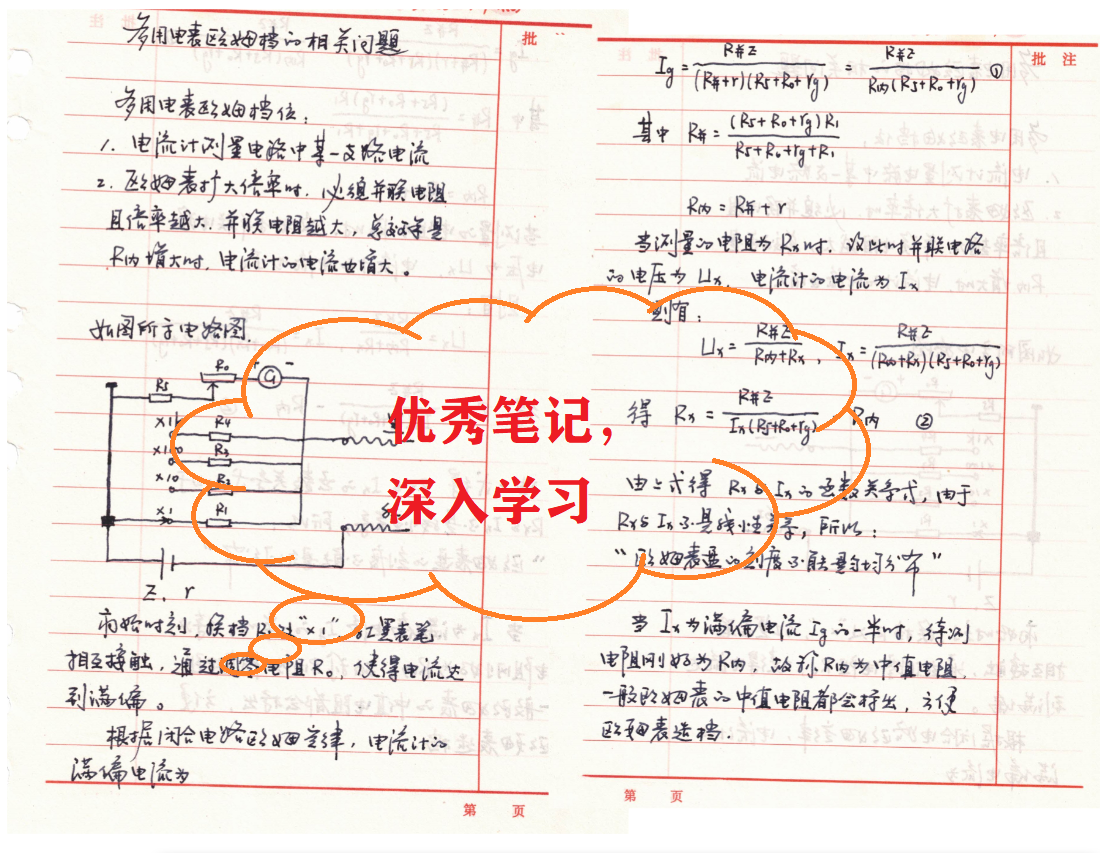 多用电表欧姆档的相关问题
批
多用电表欧姆档位:
1. 电流计测量电路中某一支路电流
2. 欧姆表扩大倍率时，必须并联电阻
且倍率越大，并联电阻越大，总效果是
R内增大时，电流计的电流也增大。
如图所示电路图.
R5 R0 + G -
x1k R4
x100 R3
x10 R2
x1 R1
Σ, r
换档 "x1", 红黑表笔
相互接触，通过 电阻R0，使得电流达
到满偏。
根据闭合电路欧姆定律，电流计的
满偏电流为
第 页
批 注
Ig = R并Σ/((R并+r)(R5+R0+rg)) R并Σ/(R内(R5+R0+rg)) ①
其中 R并 = (R5+R0+rg)R1/(R5+R0+rg+R1)
R内 = R并+r
当测量的电阻为Rx时，设此时并联电路
的电压为Ux，电流计的电流为Ix
则有:
Ux = R并Σ/(R内+Rx), Ix = R并Σ/((R内+Rx)(R5+R0+rg))
得 Rx = R并Σ/(Ix(R5+R0+rg)) R内 ②
由上式得 Rx与Ix的函数关系式，由于
Rx与Ix不是线性关系，所以:
"欧姆表盘的刻度不是均匀分布"
当Ix为满偏电流Ig的一半时，待测
电阻刚好为R内，故称R内为中值电阻.
一般欧姆表的中值电阻都会标出，方便
欧姆表选档.
第 页
优秀笔记，
深入学习